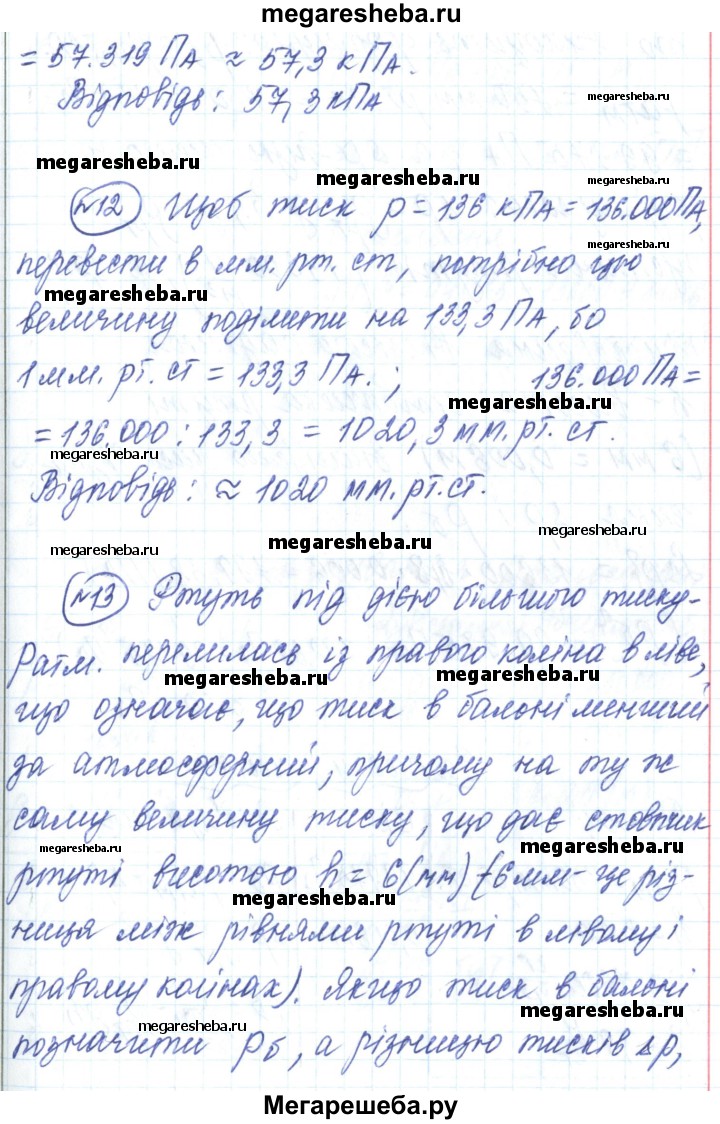 megaresheba.ru
= 57.319 Па ≈ 57,3 кПа.
Відповідь: 57,3 кПа
megaresheba.ru
megaresheba.ru
megaresheba.ru
megaresheba.ru
№12 Щоб тиск p = 136 кПа = 136.000 Па,
megaresheba.ru
перевести в мм. рт. ст, потрібно цю
megaresheba.ru
megaresheba.ru
величину поділити на 133,3 Па, бо
1 мм. рт. ст = 133,3 Па. ; 136.000 Па =
megaresheba.ru
= 136.000 : 133,3 = 1020,3 мм. рт. ст.
megaresheba.ru
Відповідь: ≈ 1020 мм. рт. ст.
megaresheba.ru
megaresheba.ru
megaresheba.ru
№13 Ртуть під дією більшого тиску-
Pатм. перелилась із правого коліна в ліве,
megaresheba.ru
megaresheba.ru
що означає, що тиск в балоні менший
за атмосферний, причому на ту ж
саму величину тиску, що дає стовпчик
megaresheba.ru
megaresheba.ru
ртуті висотою h = 6 (мм) (6 мм - це різ-
megaresheba.ru
ниця між рівнями ртуті в лівому і
правому колінах). Якщо тиск в балоні
megaresheba.ru
megaresheba.ru
позначити pб, а різницю тисків Δp,
Мегарешеба.ру